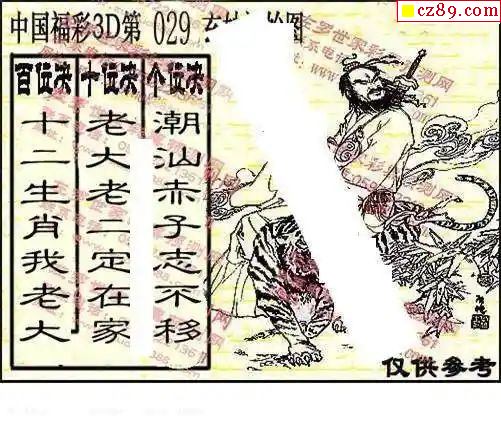 cz89.com
中国福彩3D第 029
百位决 十位决 个位决
十二生肖我老大
老大老二定在家
潮汕赤子志不移
仅供参考